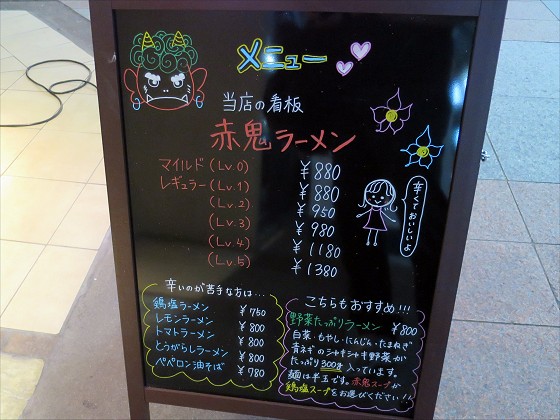 メニュー
当店の看板
赤鬼ラーメン
マイルド(Lv.0) ¥880
レギュラー(Lv.1) ¥880
(Lv.2) ¥950
(Lv.3) ¥980
(Lv.4) ¥1180
(Lv.5) ¥1380
辛くておいしいよ
辛いのが苦手な方は…
鶏塩ラーメン ¥750
レモンラーメン ¥800
トマトラーメン ¥800
とうがらしラーメン ¥800
ペペロン油そば ¥780
こちらもおすすめ!!!
野菜たっぷりラーメン ¥800
白菜・もやし・にんじん・たまねぎ
青ネギのシャキシャキ野菜が
たっぷり300g入っています。
麺は半玉です。赤鬼スープか
鶏塩スープをお選びください!!